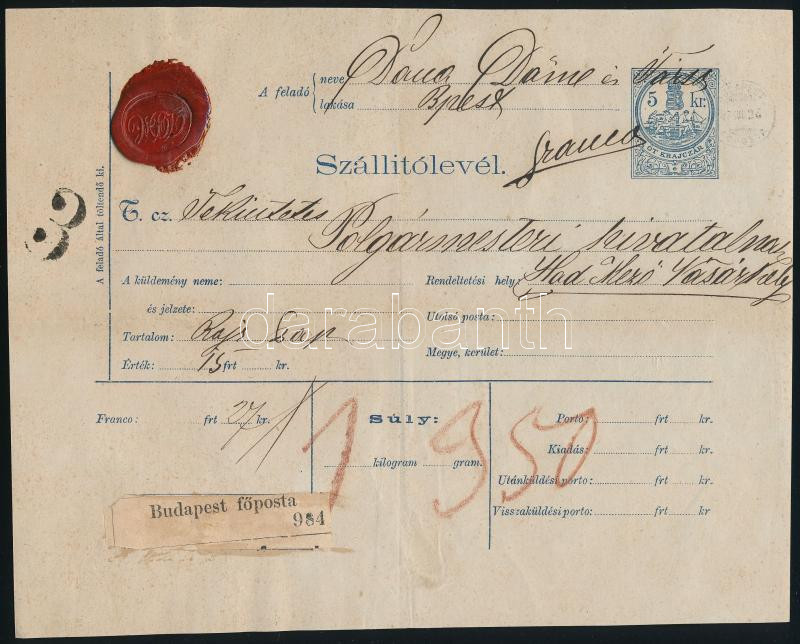 A feladó
neve
lakása Bpest
5 kr.
ÖT KRAJCZÁR
Szállitólevél.
franco
A feladó által töltendő ki.
3
T. cz. Tekintetes
Polgármesteri hivatalnak
A küldemény neme:
Rendeltetési hely: Hod Mező Vásárhely
és jelzete:
Utolsó posta:
Tartalom: Rajz
Megye, kerület:
Érték: 15 frt kr.
Franco: frt 27 kr.
Súly:
kilogram gram.
1 950
Porto: frt kr.
Kiadás: frt kr.
Utánküldési porto: frt kr.
Visszaküldési porto: frt kr
Budapest főposta
984
darabanth